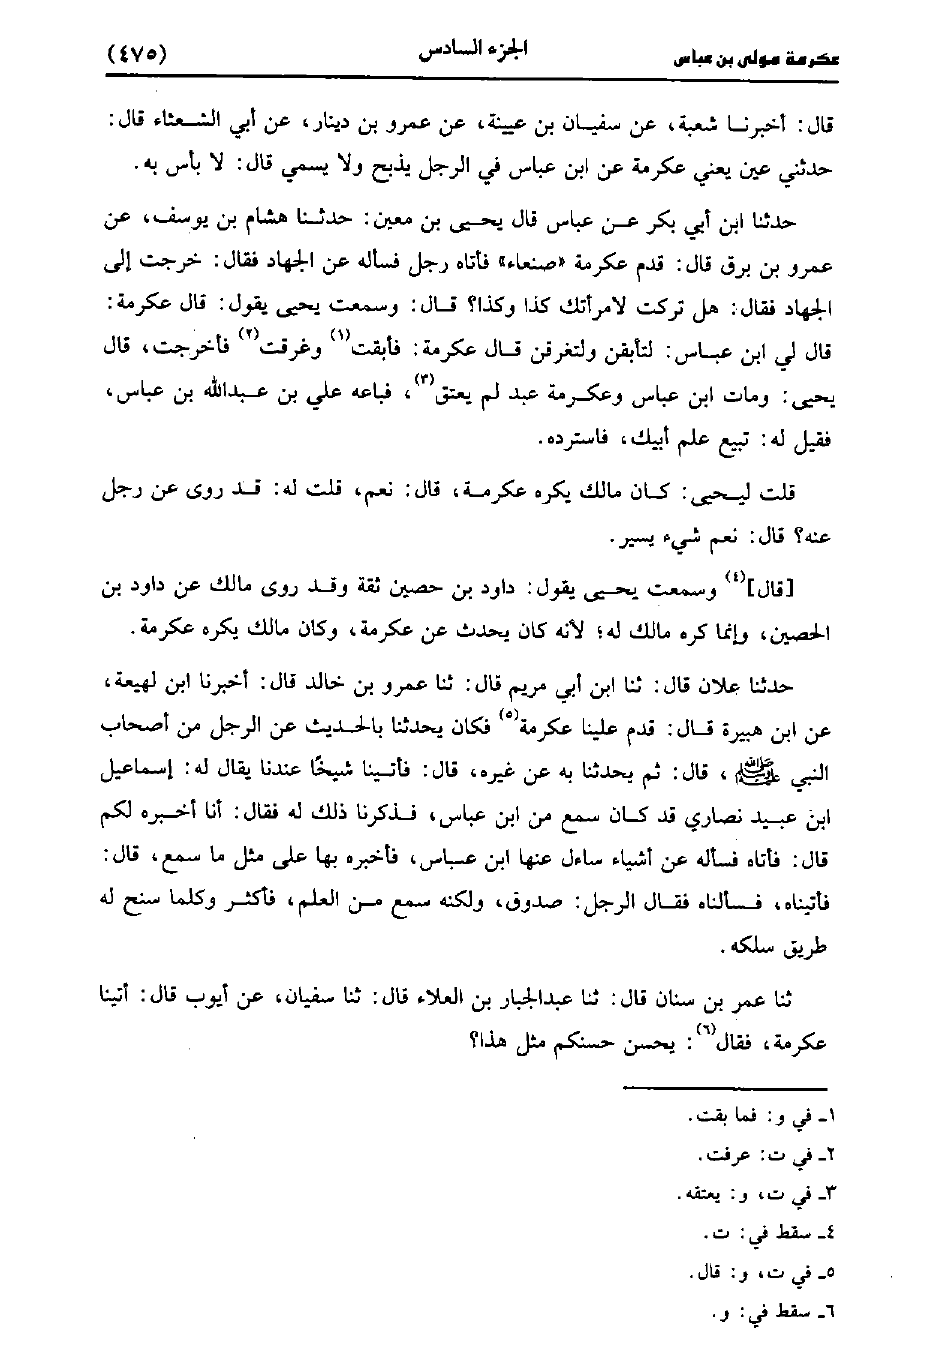 عكرمة مولى بن عباس الجزء السادس (٤٧٥)
قال: أخبرنا شعبة، عن سفيان بن عيينة، عن عمرو بن دينار، عن أبي الشعثاء قال:
حدثني عين يعني عكرمة عن ابن عباس في الرجل يذبح ولا يسمي قال: لا بأس به.
حدثنا ابن أبي بكر عن عباس قال يحيى بن معين: حدثنا هشام بن يوسف، عن
عمرو بن برق قال: قدم عكرمة «صنعاء» فأتاه رجل فسأله عن الجهاد فقال: خرجت إلى
الجهاد فقال: هل تركت لامرأتك كذا وكذا؟ قال: وسمعت يحيى يقول: قال عكرمة:
قال لي ابن عباس: لتأبقن ولتغرقن قال عكرمة: فأبقت(١) وغرقت(٢) فأخرجت، قال
يحيى: ومات ابن عباس وعكرمة عبد لم يعتق(٣)، فباعه علي بن عبدالله بن عباس،
فقيل له: تبيع علم أبيك، فاسترده.
قلت ليحيى: كان مالك يكره عكرمة، قال: نعم، قلت له: قد روى عن رجل
عنه؟ قال: نعم شيء يسير.
[قال](٤) وسمعت يحيى يقول: داود بن حصين ثقة وقد روى مالك عن داود بن
الحصين، وإنما كره مالك له؛ لأنه كان يحدث عن عكرمة، وكان مالك يكره عكرمة.
حدثنا علان قال: ثنا ابن أبي مريم قال: ثنا عمرو بن خالد قال: أخبرنا ابن لهيعة،
عن ابن هبيرة قال: قدم علينا عكرمة(٥) فكان يحدثنا بالحديث عن الرجل من أصحاب
النبي ﷺ، قال: ثم يحدثنا به عن غيره، قال: فأتينا شيخًا عندنا يقال له: إسماعيل
ابن عبيد نصاري قد كان سمع من ابن عباس، فذكرنا ذلك له فقال: أنا أخبره لكم
قال: فأتاه فسأله عن أشياء ساءل عنها ابن عباس، فأخبره بها على مثل ما سمع، قال:
فأتيناه، فسألناه فقال الرجل: صدوق، ولكنه سمع من العلم، فأكثر وكلما سنح له
طريق سلكه.
ثنا عمر بن سنان قال: ثنا عبدالجبار بن العلاء قال: ثنا سفيان، عن أيوب قال: أتينا
عكرمة، فقال(٦): يحسن حسنكم مثل هذا؟
١ـ في و: فما بقت.
٢ـ في ت: عرفت.
٣ـ في ت، و: يعتقه.
٤ـ سقط في: ت.
٥ـ في ت، و: قال.
٦ـ سقط في: و.